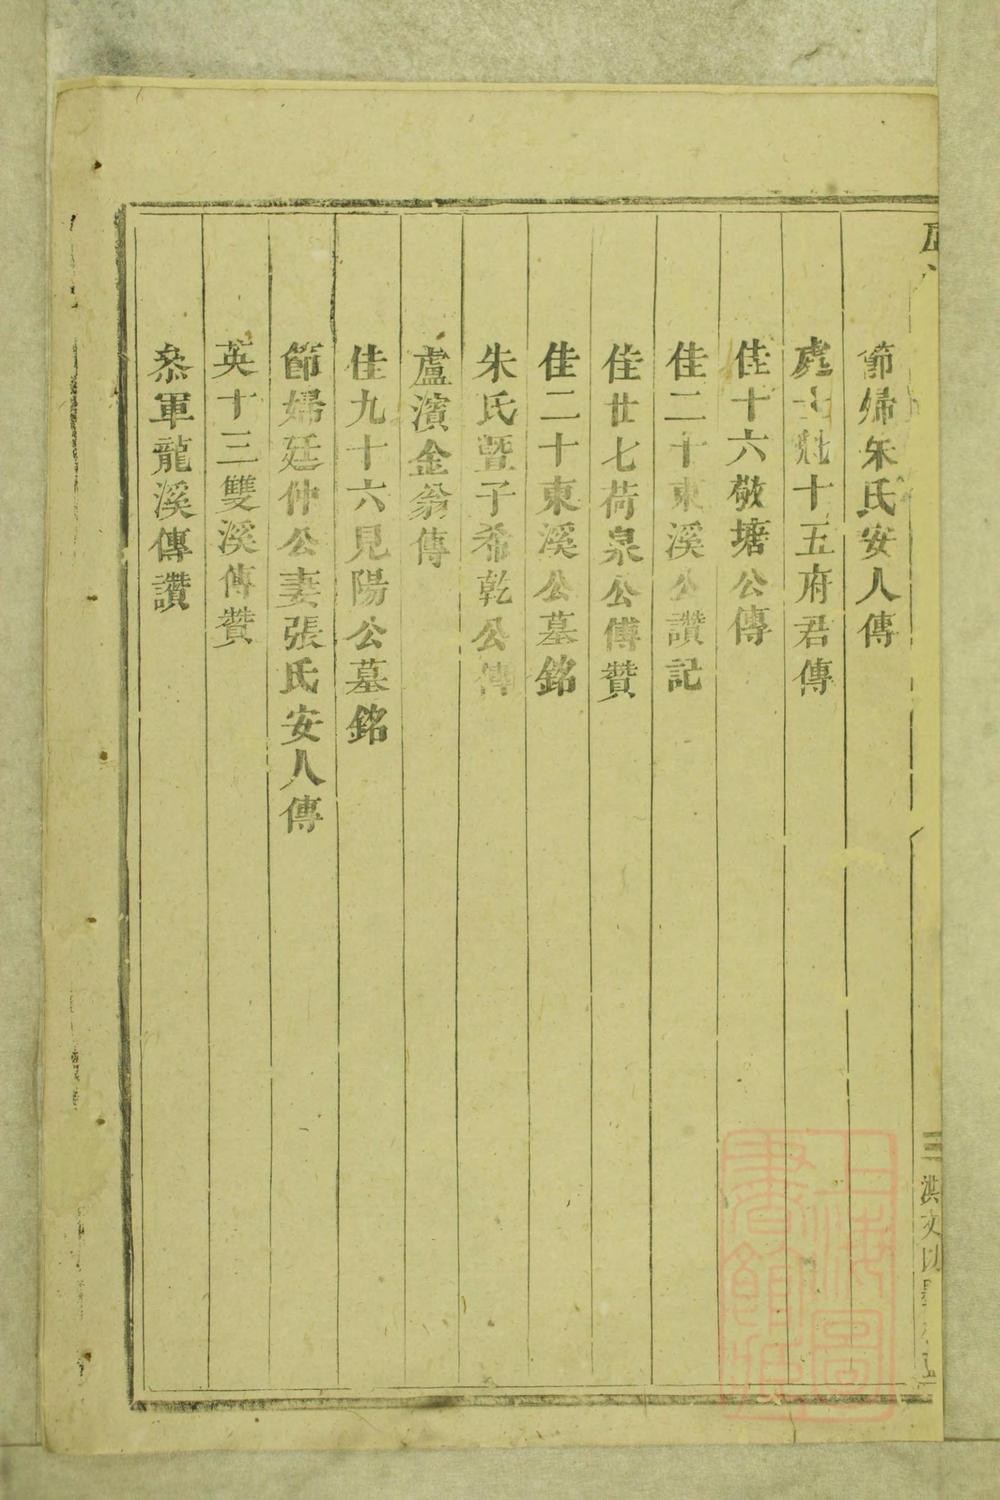 節婦朱氏安人傳
處士魁十五府君傳
佳十六敬塘公傳
佳二十東溪公讚記
佳廿七荷泉公傳贊
佳二十東溪公墓銘
朱氏暨子希乾公傳
盧濱金翁傳
佳九十六見陽公墓銘
節婦廷仲公妻張氏安人傳
英十三雙溪傳贊
叅軍龍溪傳讚
三
洪文
上海圖書館藏